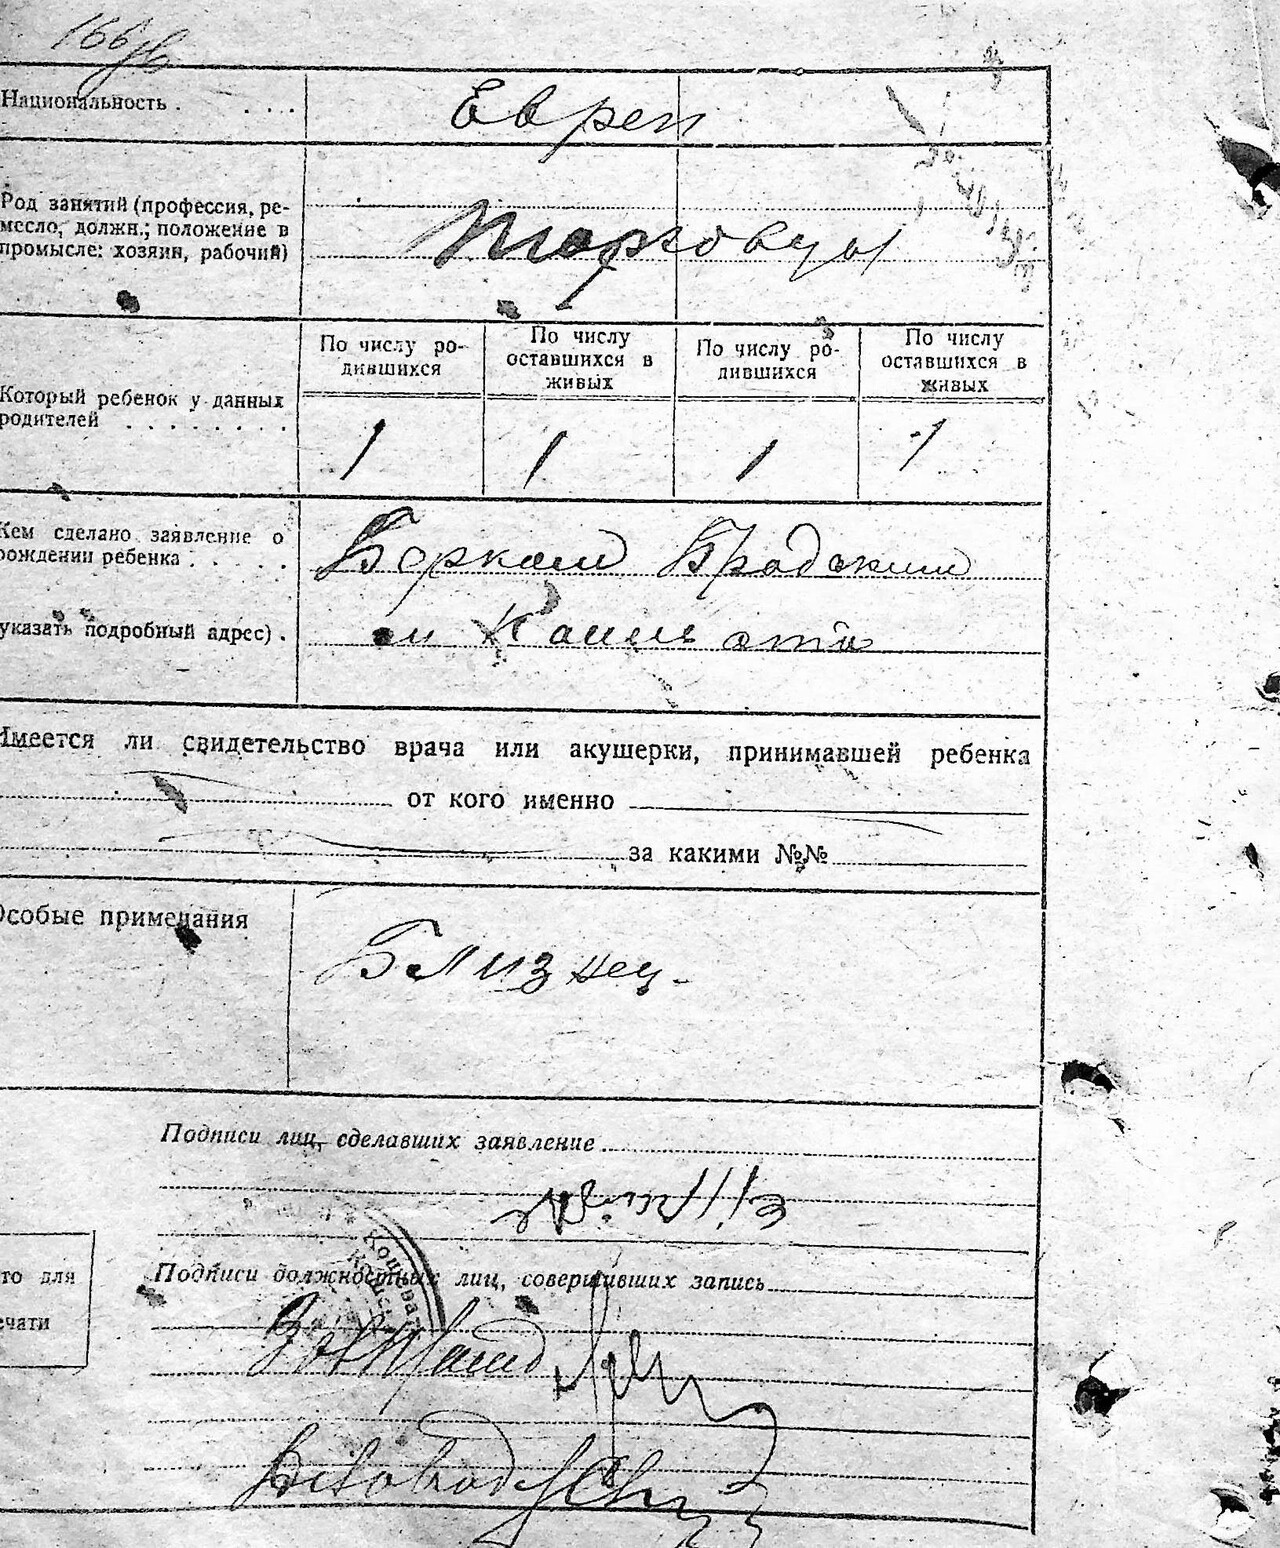 166
Национальность . . . . .
Евреи
Род занятий (профессия, ре-
месло, должн.; положение в
промысле: хозяин, рабочий)
Торговцы
По числу ро-
дившихся
По числу
оставшихся в
живых
По числу ро-
дившихся
По числу
оставшихся в
живых
Который ребенок у данных
родителей . . . . . . . .
1 1 1 1
Кем сделано заявление о
рождении ребенка . . . . .
Беркой Бродским
указать подробный адрес) .
м
Имеется ли свидетельство врача или акушерки, принимавшей ребенка
от кого именно
за какими №№
Особые примечания
Близнец.
Подписи лиц, сделавших заявление
Подписи должностных лиц, совершивших запись
то для
ечати